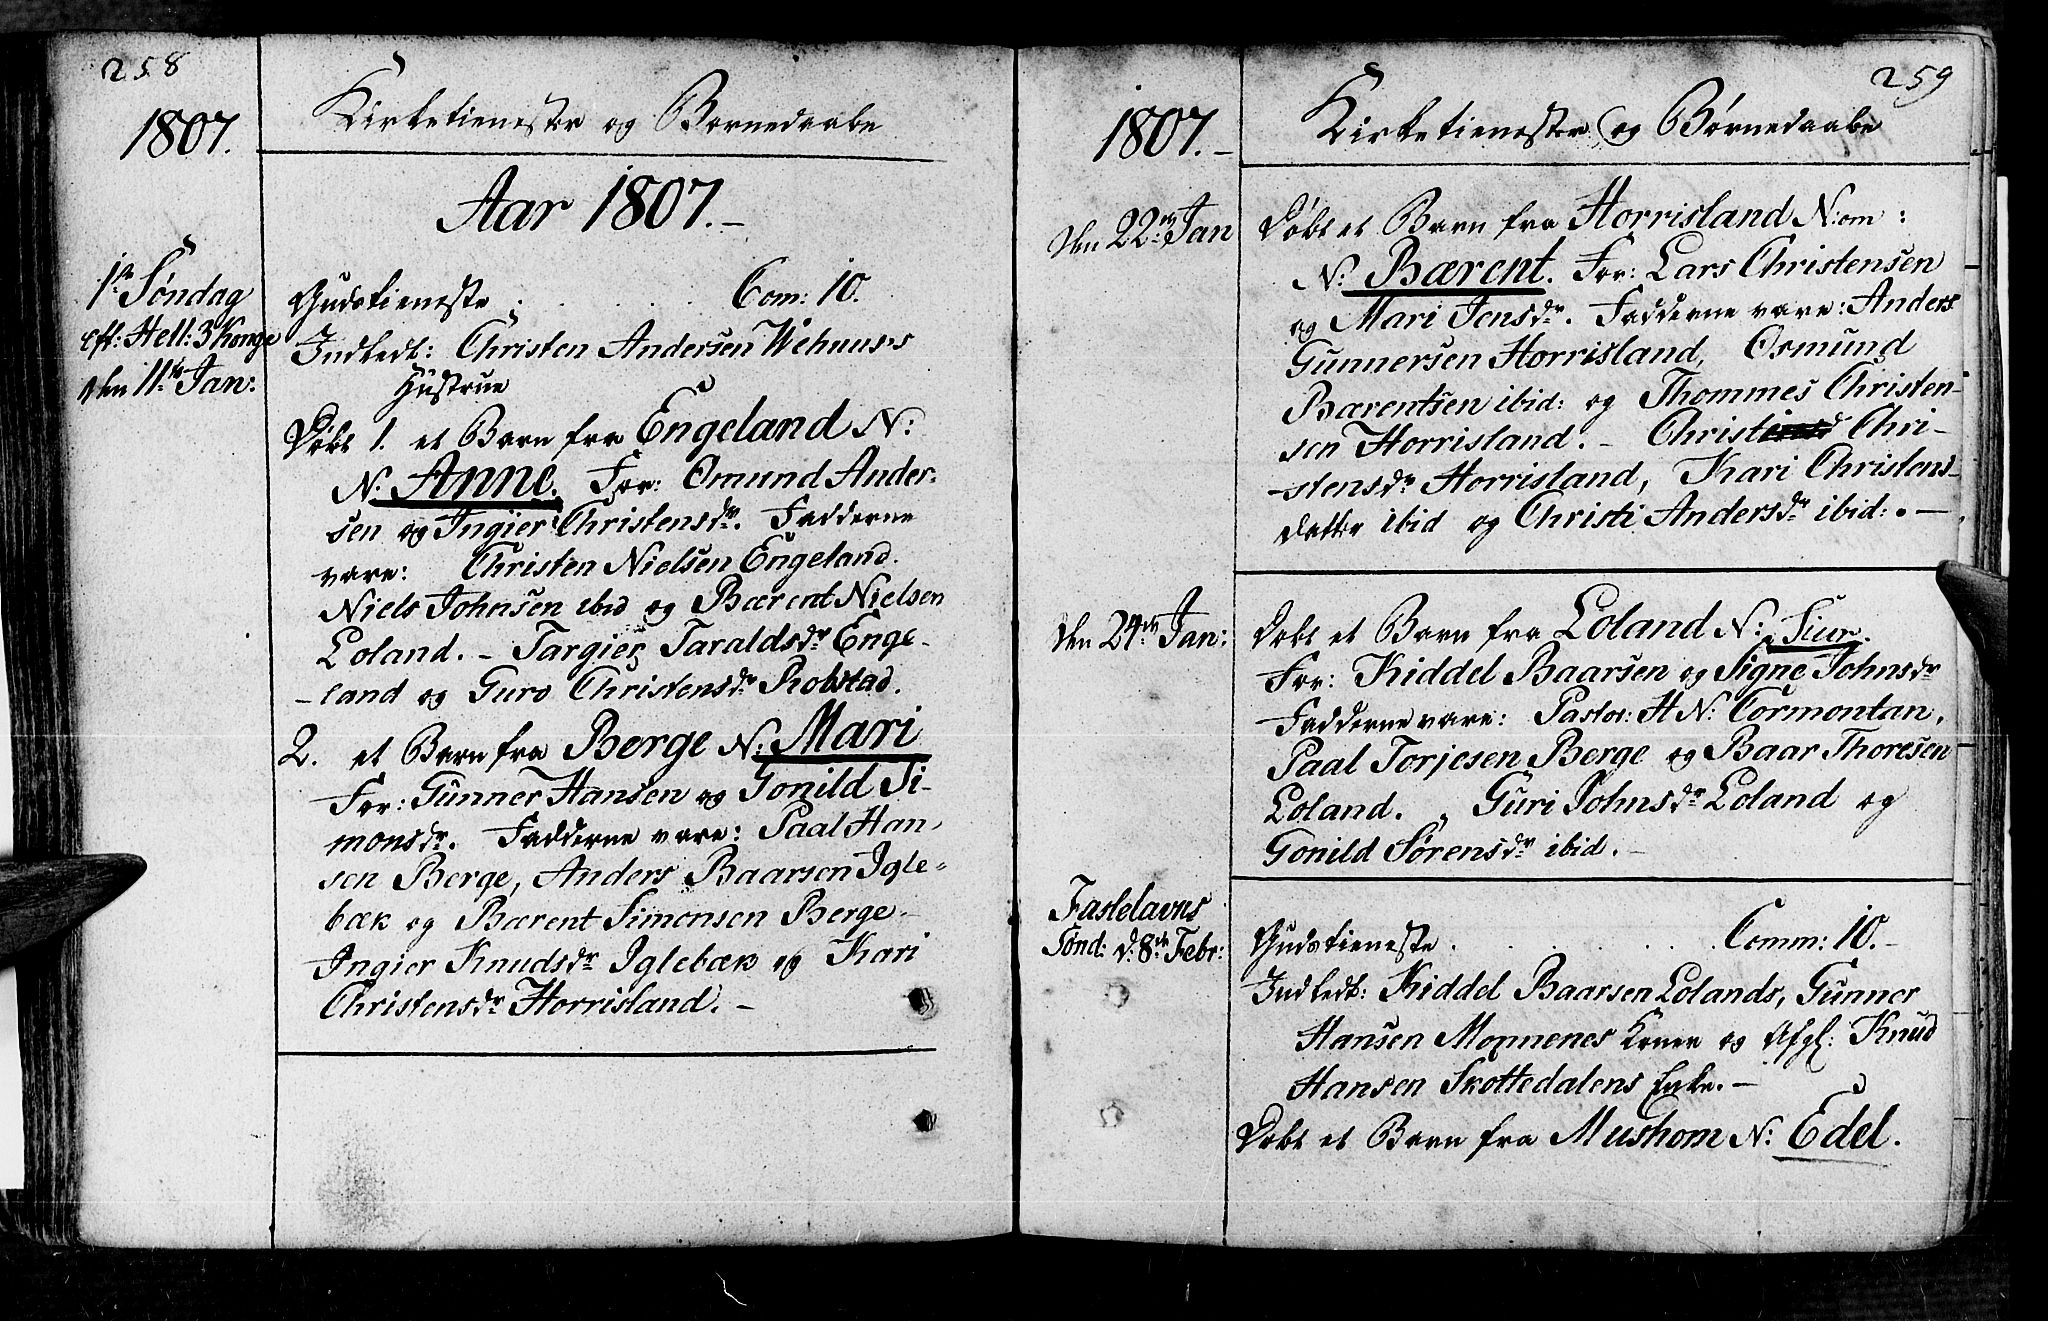 258
1807.
Kirketienester og Børnedaabe
Aar 1807.-
1te Søndag
eft: Hell: 3 Konge
den 11te Jan:
Gudstieneste . . . . . Com: 10.
Indledt: Christen Andersen Wehuus's
Hustrue
Døbt 1. et Barn fra Engeland N:
N: Anne. For: Osmund Ander-
sen og Ingier Christensdr. Fadderne
vare: Christen Nielsen Engeland.
Niels Johnsen ibid og Bærent Nielsen
Loland. - Targier Taraldsdr Enge-
-land og Guro Christensdr Robstad.
2. et Barn fra Berge N: Mari
For: Gunner Hansen og Gonild Si-
monsdr. Fadderne vare: Paal Han-
sen Berge, Anders Baarsen Igle-
bæk og Bærent Simonsen Berge.
Ingier Knudsdr Iglebæk og Kari
Christensdr Horrisland. -
259
1807.-
Kirketienester og Børnedaabe
den 22de Jan
Døbt et Barn fra Horrisland N:om:
N: Bærent. For: Lars Christensen
og Mari Jensdr. Fadderne vare: Anders
Gunnersen Horrisland, Osmund
Bærentsen ibid: og Thommes Christen-
sen Horrisland. - Christi Chri-
-stensdr Horrisland, Kari Christens-
datter ibid og Christi Andersdr ibid: . -
den 24de Jan:
Døbt et Barn fra Loland N: Siur.
For: Kiddel Baarsen og Signe Johnsdr
Fadderne vare: Pastor: H N: Cormontan,
Paal Torjesen Berge og Baar Thoresen
Loland. Guri Johnsdr Loland og
Gonild Sørensdr ibid. -
Fastelavns
Sønd: d: 8de Febr:
Gudstieneste . . . . . Comm: 10. -
Indledt: Kiddel Baarsen Lolands, Gunner
Hansen Moxnenes Koner og Afgl: Knud
Hansen Skottedalens Enke. -
Døbt et Barn fra Mushom N: Edel.